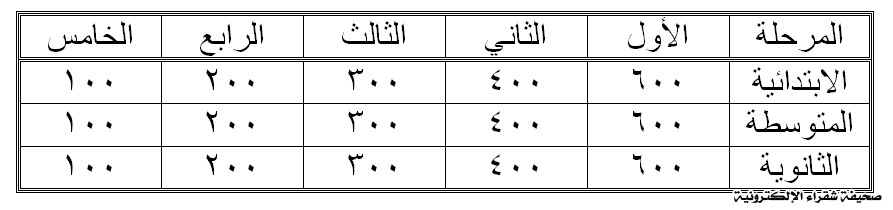 المرحلة الأول الثاني الثالث الرابع الخامس
الابتدائية ٦٠٠ ٤٠٠ ٣٠٠ ٢٠٠ ١٠٠
المتوسطة ٦٠٠ ٤٠٠ ٣٠٠ ٢٠٠ ١٠٠
الثانوية ٦٠٠ ٤٠٠ ٣٠٠ ٢٠٠ ١٠٠
صحيفة شقراء الإلكترونية